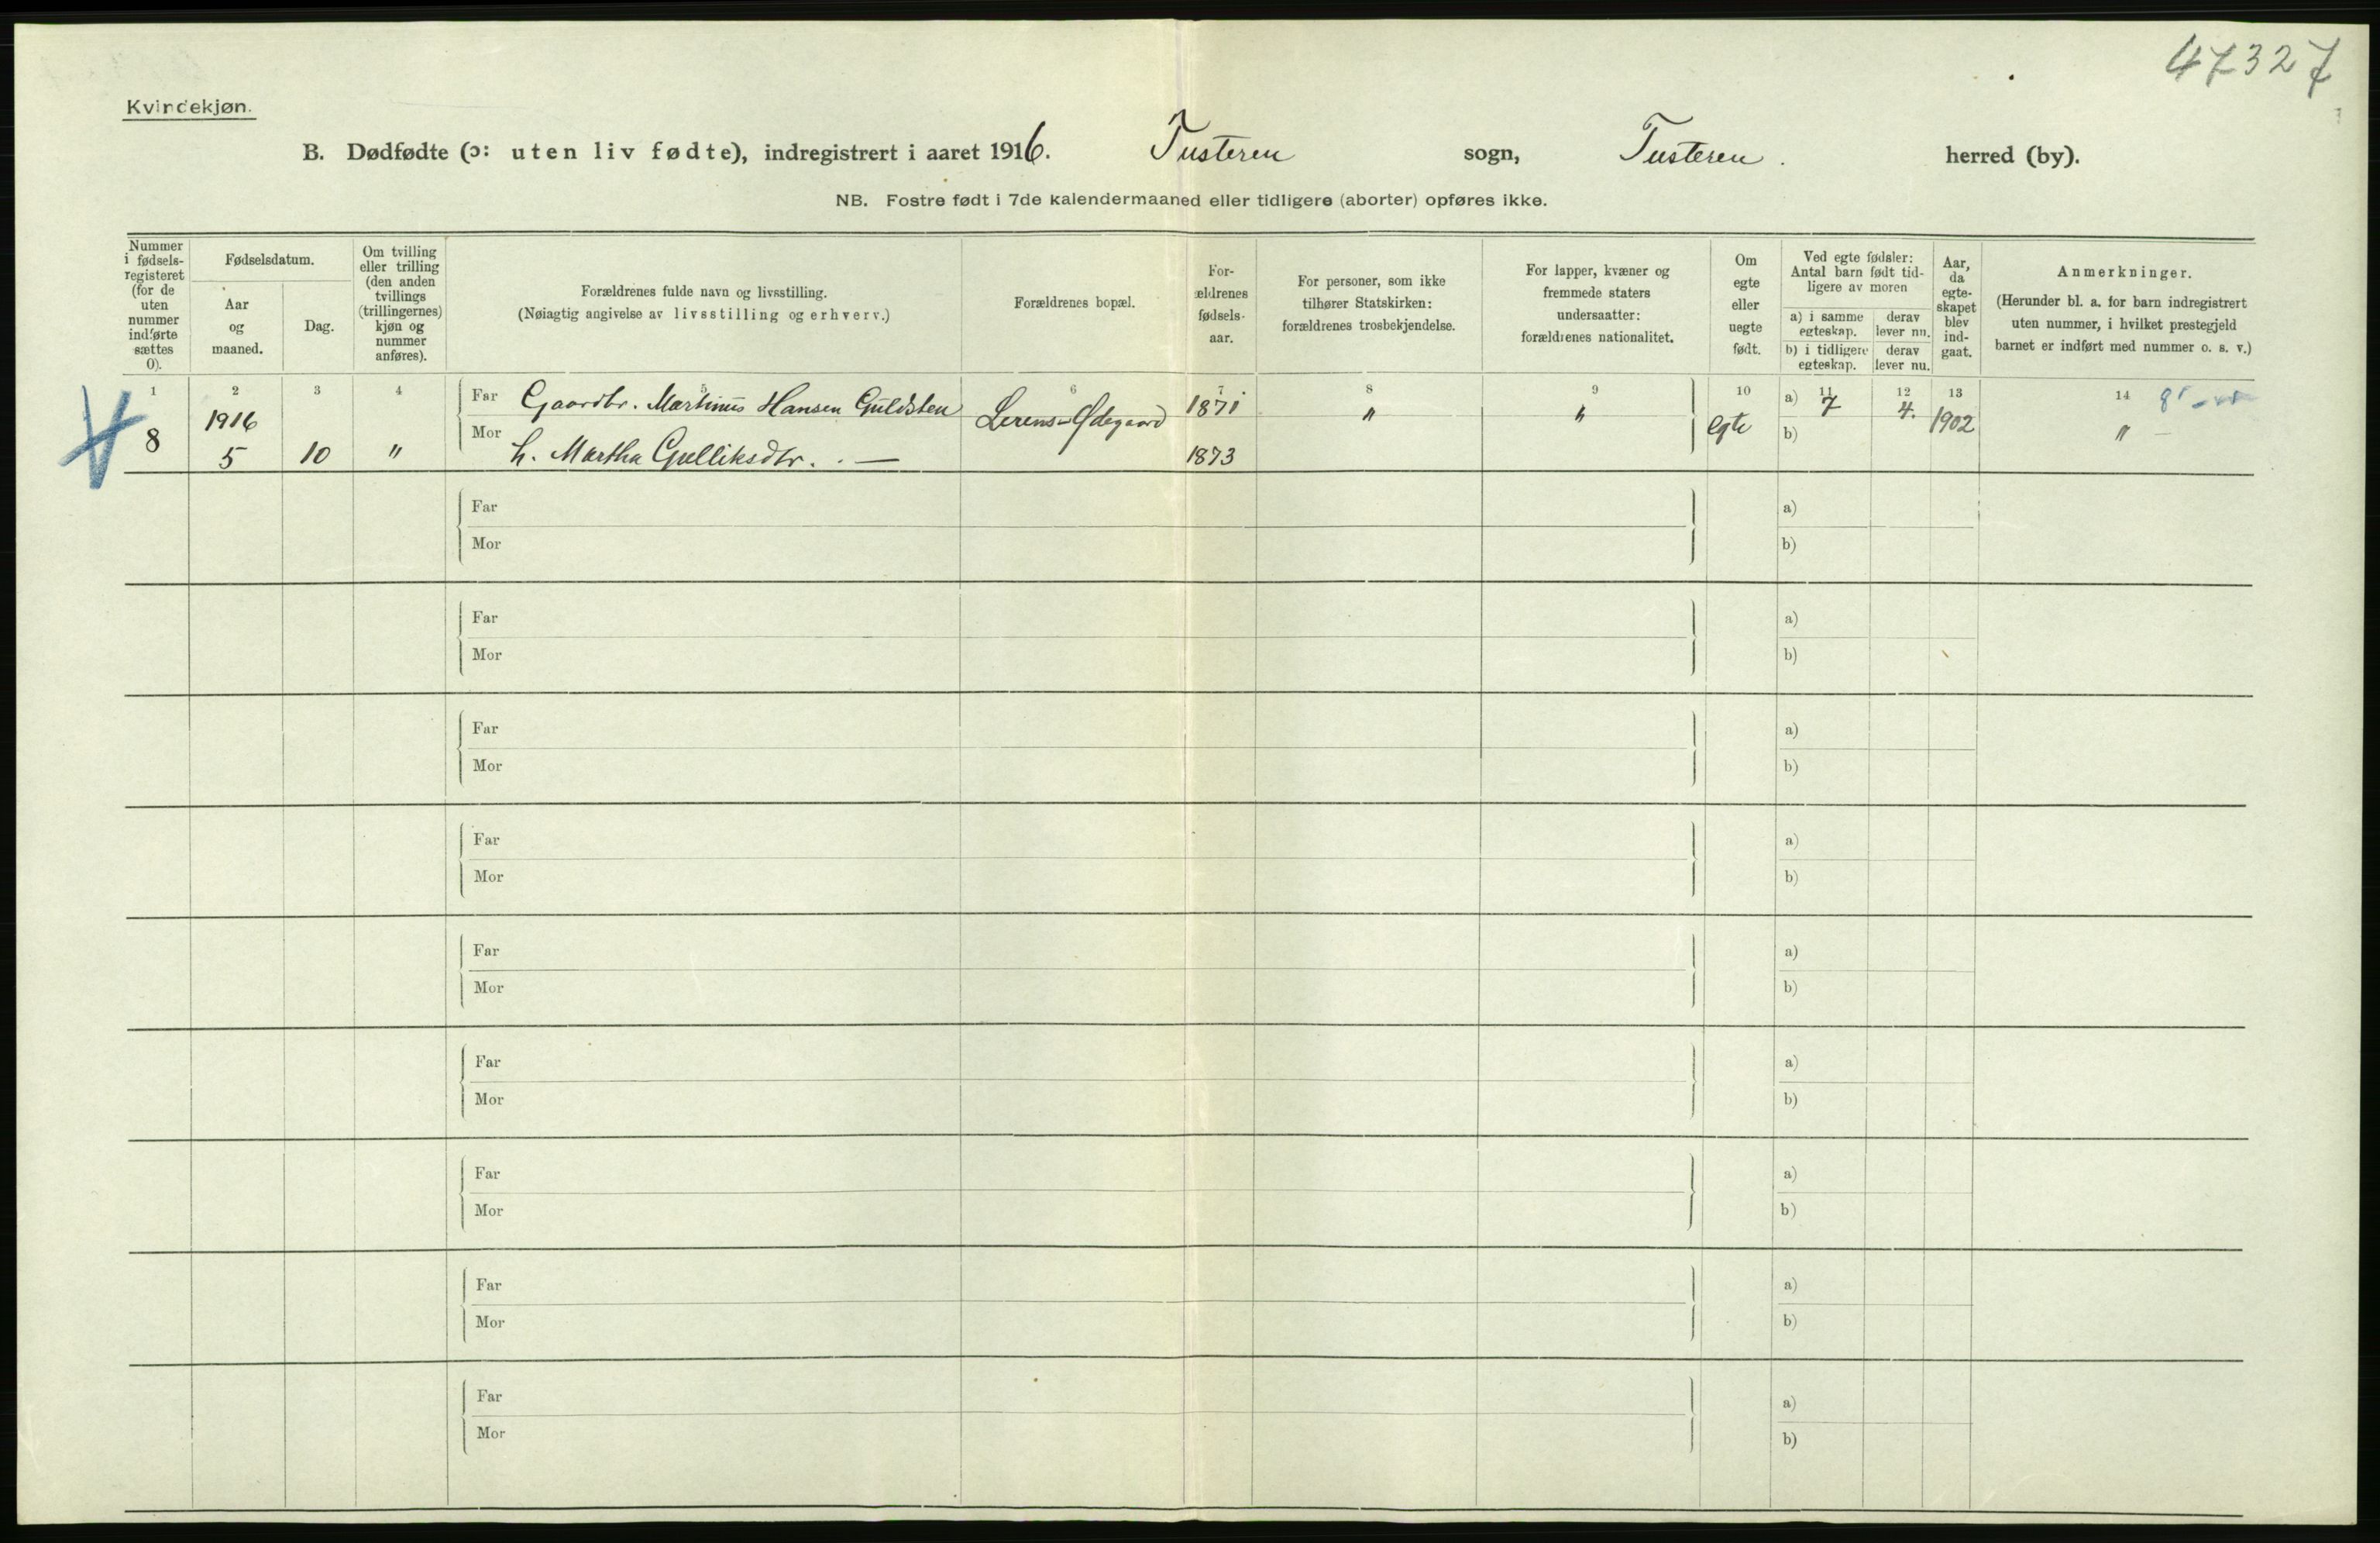 47327
Kvindekjøn.
B. Dødfødte (ɔ: uten liv fødte), indregistrert i aaret 1916. Tusteren sogn, Tusteren. herred (by).
NB. Fostre født i 7de kalendermaaned eller tidligere (aborter) opføres ikke.
Nummer
i fødsels-
registeret
(for de
uten
nummer
indførte
sættes
0).
Fødselsdatum.
Aar
og
maaned.
Dag.
Om tvilling
eller trilling
(den anden
tvillings
(trillingernes)
kjøn og
nummer
anføres).
Forældrenes fulde navn og livsstilling.
(Nøiagtig angivelse av livsstilling og erhverv.)
Forældrenes bopæl.
For-
ældrenes
fødsels-
aar.
For personer, som ikke
tilhører Statskirken:
forældrenes trosbekjendelse.
For lapper, kvæner og
fremmede staters
undersaatter:
forældrenes nationalitet.
Om
egte
eller
uegte
født.
Ved egte fødsler:
Antal barn født tid-
ligere av moren
a) i samme
egteskap.
derav
lever nu.
b) i tidligere
egteskap.
derav
lever nu.
Aar,
da
egte-
skapet
blev
ind-
gaat.
Anmerkninger.
(Herunder bl. a. for barn indregistrert
uten nummer, i hvilket prestegjeld
barnet er indført med nummer o. s. v.)
1 2 3 4 5 6 7 8 9 10 11 12 13 14
Far Gaardbr. Martinus Hansen Guldsten 1871 " " a) 7 4.
8 1916 Ødegaard egte 1902 "
Mor h. Martha Gulliksdtr. — 1873 b)
5 10 "
Far a)
Mor b)
Far a)
Mor b)
Far a)
Mor b)
Far a)
Mor b)
Far a)
Mor b)
Far a)
Mor b)
Far a)
Mor b)
Far a)
Mor b)
Far a)
Mor b)